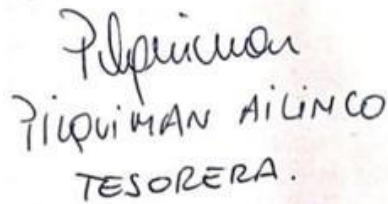 Pilquiman
PILQUIMAN AILINCO
TESORERA.